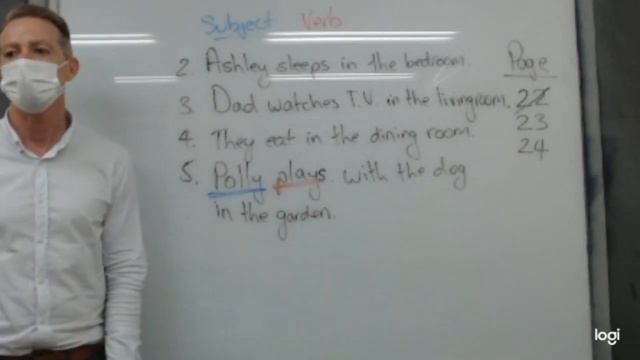 Subject Verb
2. Ashley sleeps in the bedroom.
3. Dad watches T.V. in the livingroom.
4. They eat in the dining room.
5. Polly plays with the dog
in the garden.
Page
22
23
24
logi